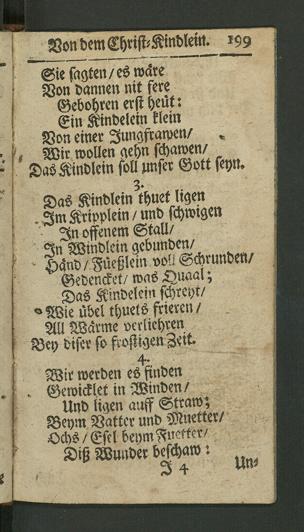 Von dem Christ-Kindlein. 199
Sie sagten / es wäre
Von dannen nit fere
Gebohren erst heüt:
Ein Kindelein klein
Von einer Jungfrawen /
Wir wollen gehn schawen /
Das Kindlein soll unser Gott seyn.
3.
Das Kindlein thuet ligen
Im Kripplein / und schwigen
In offenem Stall /
In Windlein gebunden /
Händ / Füeßlein voll Schrunden /
Gedencket / was Quaal;
Das Kindelein schreyt /
Wie übel thuets frieren /
All Wärme verliehren
Bey diser so frostigen Zeit.
4.
Wir werden es finden
Gewicklet in Winden /
Und ligen auff Straw;
Beym Vatter und Muetter /
Ochs / Esel beym Fuetter /
Diß Wunder beschaw:
J 4 Un-